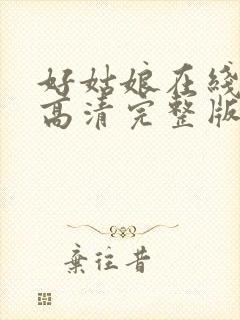 好姑娘在线
高清完整版
弃往昔